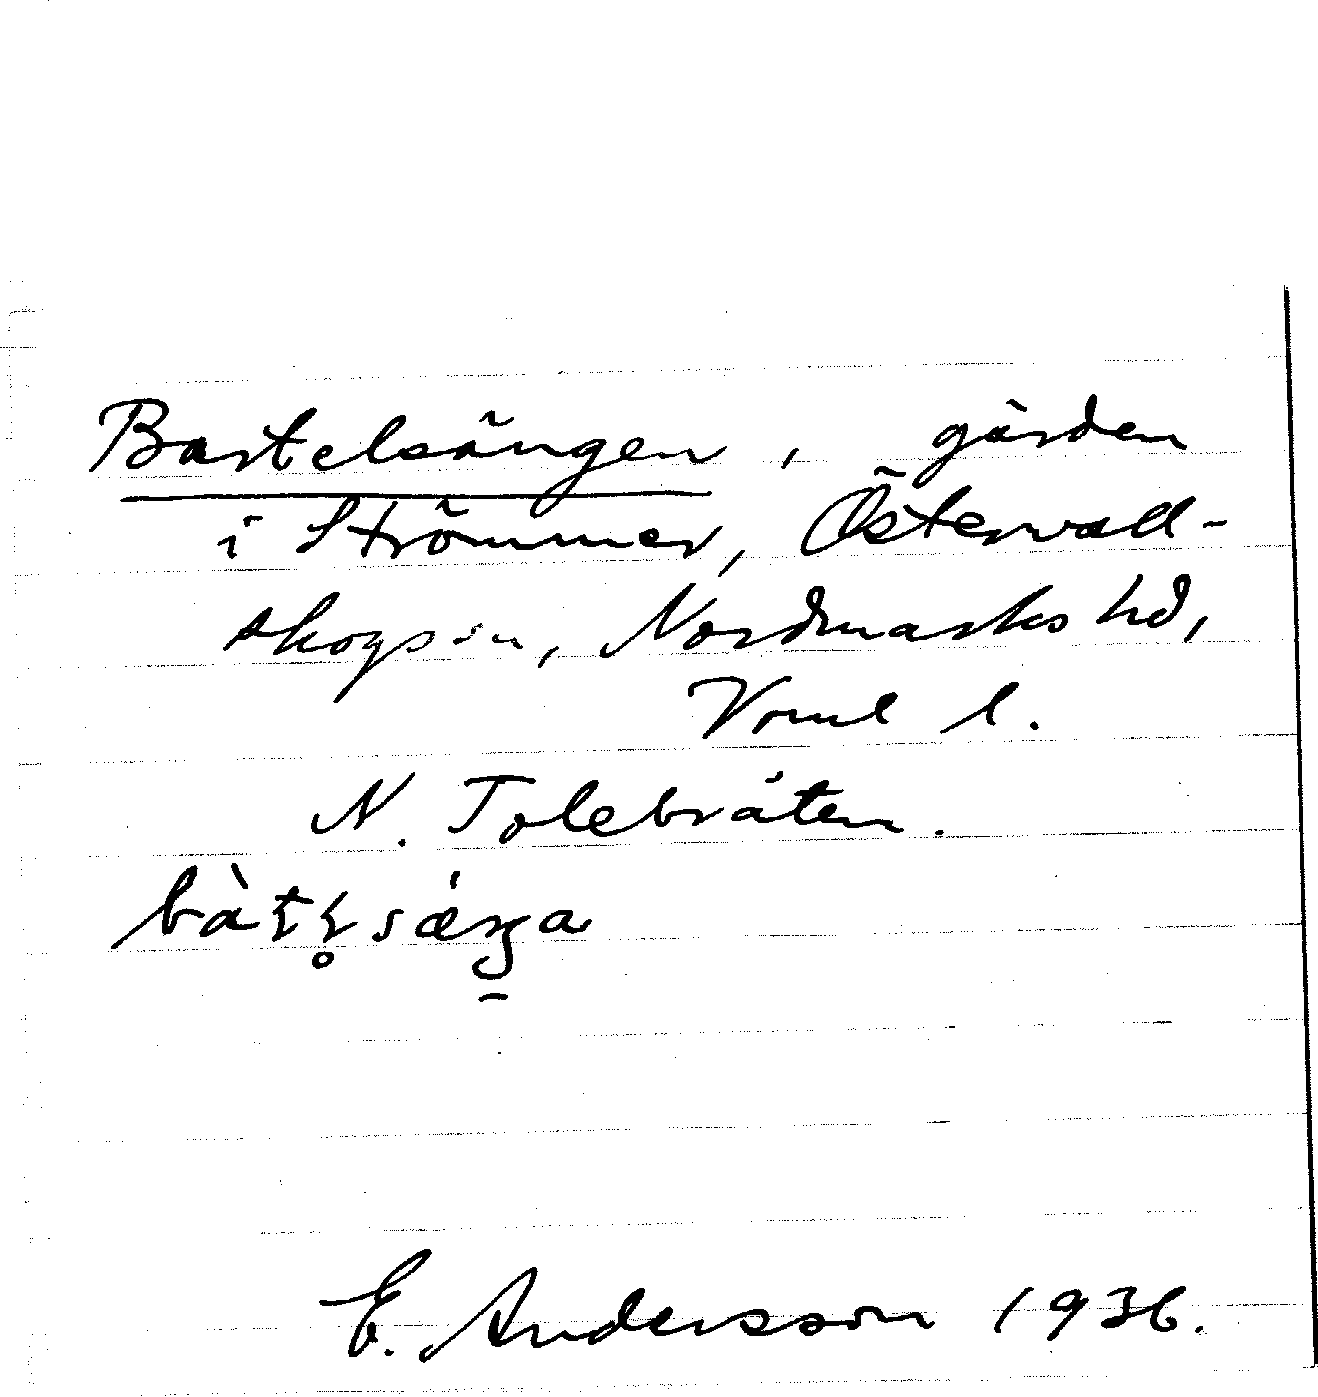 Bartelsängen, gården
i Strömmer, Östervall-
skogs sn, Nordmarks hd,
Vrml l.
N. Tolebråten.
E. Andersson 1936.